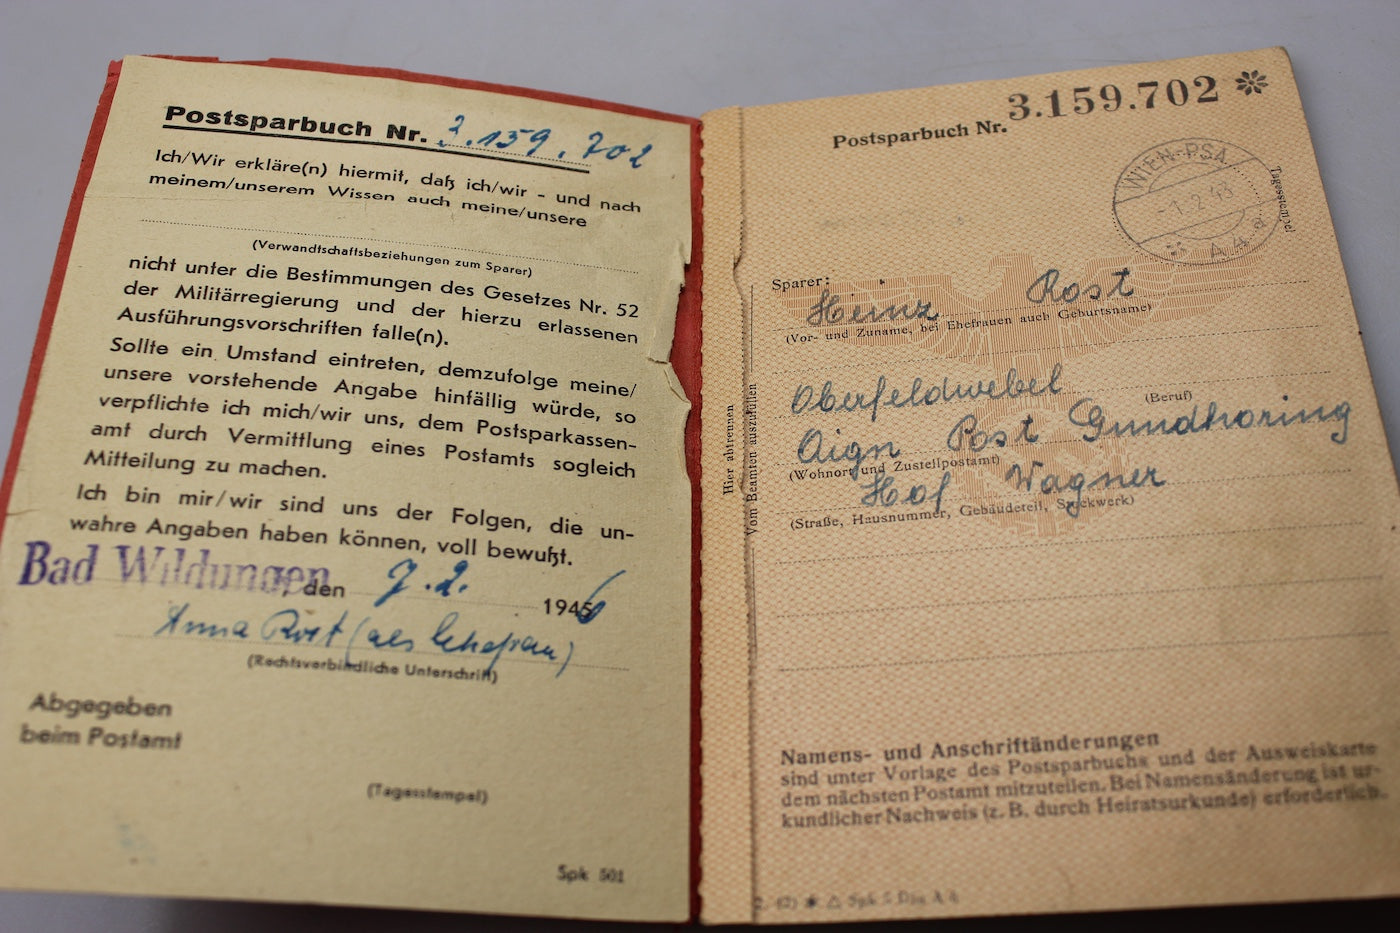 Postsparbuch Nr. 3.159.702
Ich/Wir erkläre(n) hiermit, daß ich/wir - und nach
meinem/unserem Wissen auch meine/unsere
(Verwandtschaftsbeziehungen zum Sparer)
nicht unter die Bestimmungen des Gesetzes Nr. 52
der Militärregierung und der hierzu erlassenen
Ausführungsvorschriften falle(n).
Sollte ein Umstand eintreten, demzufolge meine/
unsere vorstehende Angabe hinfällig würde, so
verpflichte ich mich/wir uns, dem Postsparkassen-
amt durch Vermittlung eines Postamts sogleich
Mitteilung zu machen.
Ich bin mir/wir sind uns der Folgen, die un-
wahre Angaben haben können, voll bewußt.
Bad Wildungen, den 7.2. 1946
Anna Rost (als Ehefrau)
(Rechtsverbindliche Unterschrift)
Abgegeben
beim Postamt
(Tagesstempel)
Spk 501
Hier abtrennen
Vom Beamten auszufüllen
Postsparbuch Nr. 3.159.702
WIEN-PSA
-1.2.43
Tagesstempel
Sparer:
Heinz Rost
(Vor- und Zuname, bei Ehefrauen auch Geburtsname)
Oberfeldwebel
(Beruf)
Aign Post Gundhöring
(Wohnort und Zustellpostamt)
Hof Wagner
(Straße, Hausnummer, Gebäudeteil, Stockwerk)
Namens- und Anschriftänderungen
sind unter Vorlage des Postsparbuchs und der Ausweiskarte
dem nächsten Postamt mitzuteilen. Bei Namensänderung ist ur-
kundlicher Nachweis (z. B. durch Heiratsurkunde) erforderlich.